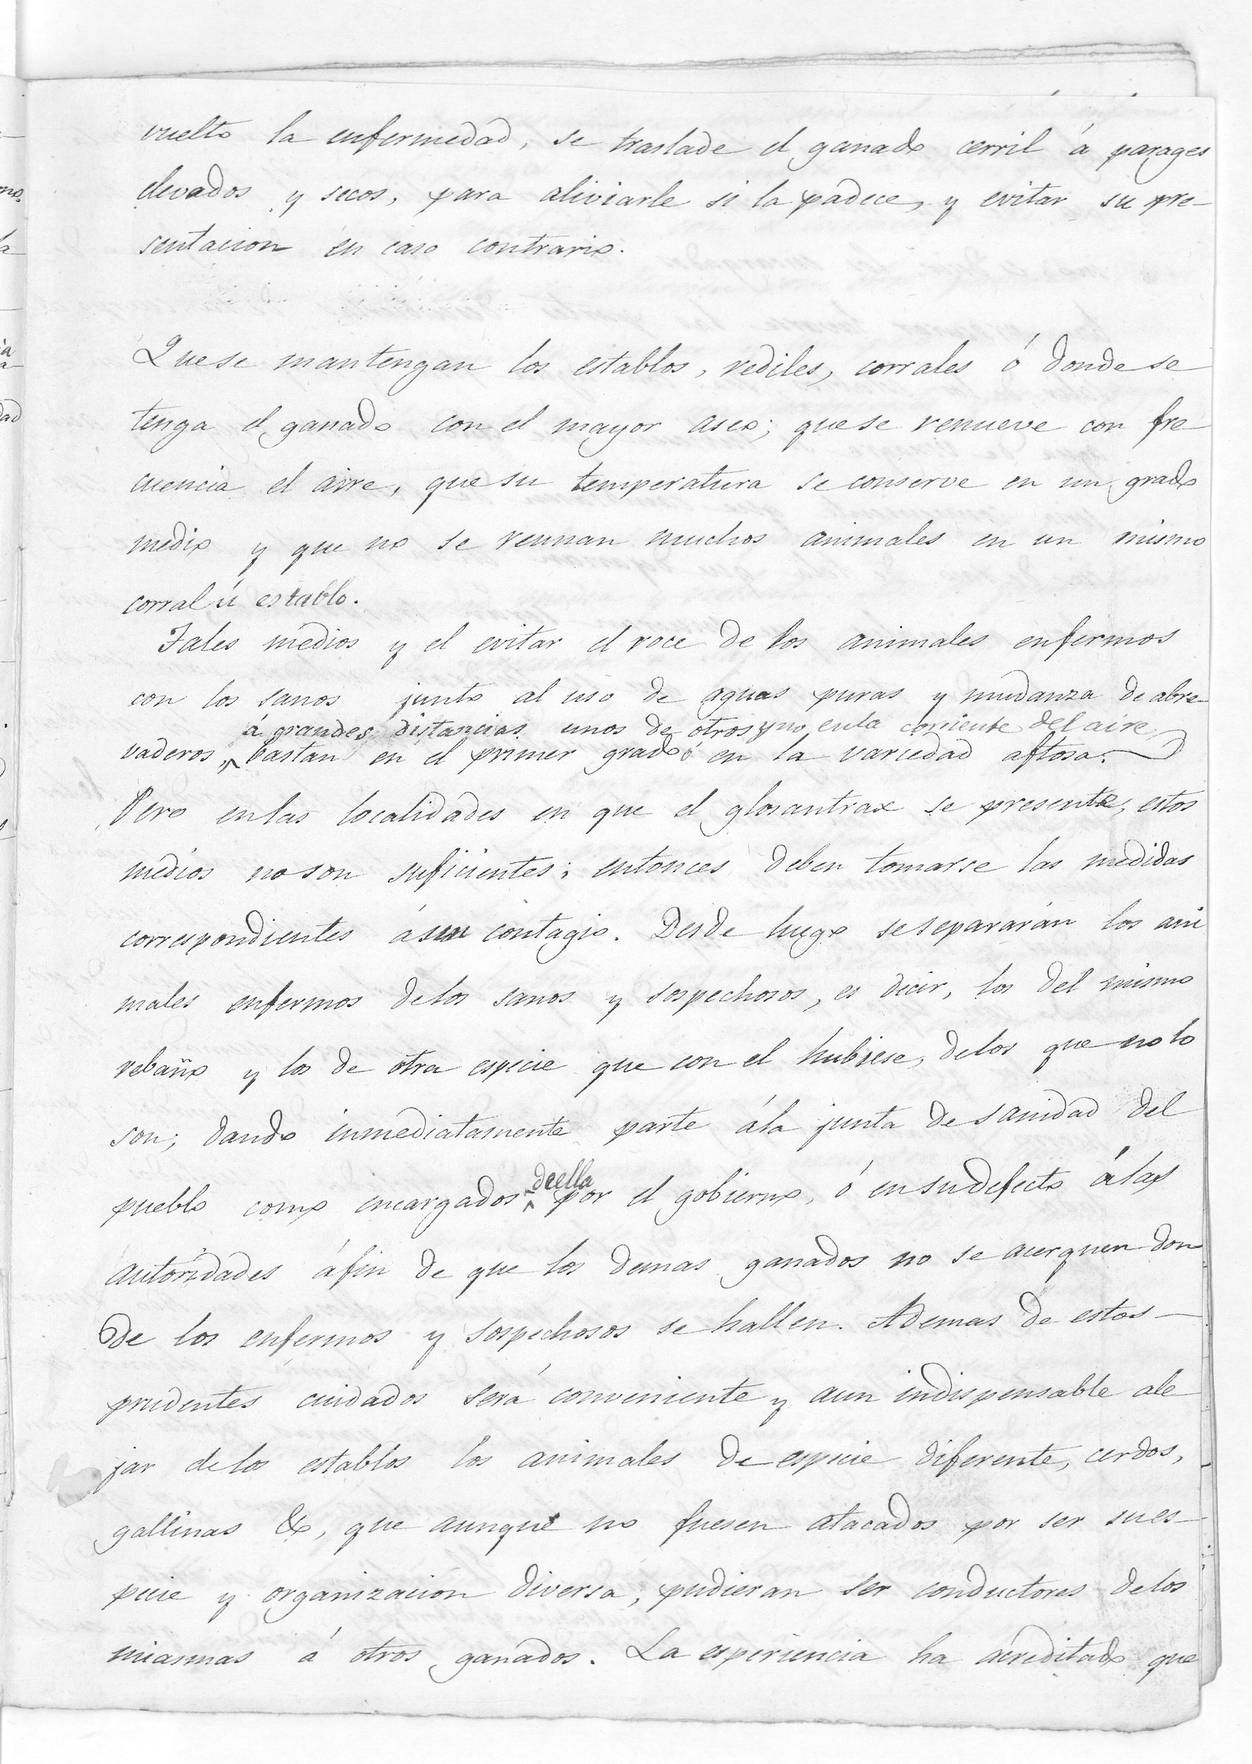 vuelto la enfermedad, se traslade el ganado cerril á parages
elevados y secos, para aliviarle si la padece, y evitar su pre-
sentacion en caso contrario.
Que se mantengan los establos, rediles, corrales ó donde se
tenga el ganado con el mayor aseo; que se renueve con fre-
cuencia el aire, que su temperatura se conserve en un grado
medio y que no se reunan muchos animales en un mismo
corral ú establo.
Tales medios y el evitar el roce de los animales enfermos
con los sanos junto al uso de aguas puras y mudanza de abre-
á grandes distancias unos de otros y no en la corriente del aire
vaderos, bastan en el primer grado ó en la variedad aftosa.
Pero en las localidades en que el glosantrax se presente, estos
medios no son suficientes; entonces deben tomarse las medidas
correspondientes á su contagio. Desde luego se separarán los ani
males enfermos de los sanos y sospechosos, es dicir, los del mismo
rebaño y los de otra especie que con el hubiese, de los que no lo
son; dando inmediatamente parte á la junta de sanidad del
deella
pueblo como encargados por el gobierno, ó en su defecto á las
autoridades á fin de que los demas ganados no se acerquen don
de los enfermos y sospechosos se hallen. Ademas de estos
prudentes cuidados será conveniente y aun indispensable ale
jar de los establos los animales de especie diferente, cerdos,
gallinas &, que aunque no fuesen atacados por ser su es-
pecie y organizacion diversa, pudieran ser conductores de los
miasmas á otros ganados. La esperiencia ha acreditado que